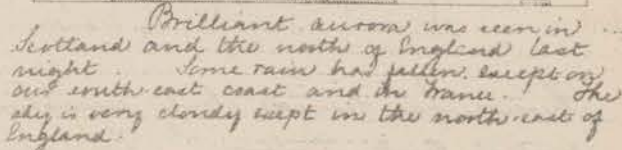 Brilliant aurora was seen in
Scotland and the north of England last
night. Some rain has fallen except on
our south east coast and in France. The
sky is very cloudy except in the north-east of
England.